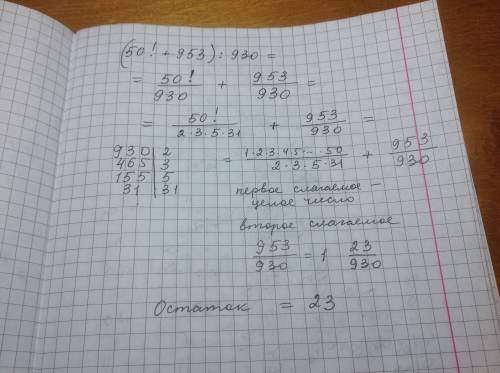 (50! + 953) : 930 =
= 50!/930 + 953/930 =
= 50!/2·3·5·31 + 953/930 =
= 1·2·3·4·5·...·50/2·3·5·31 + 953/930
930 | 2
465 | 3
155 | 5
31 | 31
первое слагаемое —
целое число
второе слагаемое
953/930 = 1 23/930
Остаток = 23